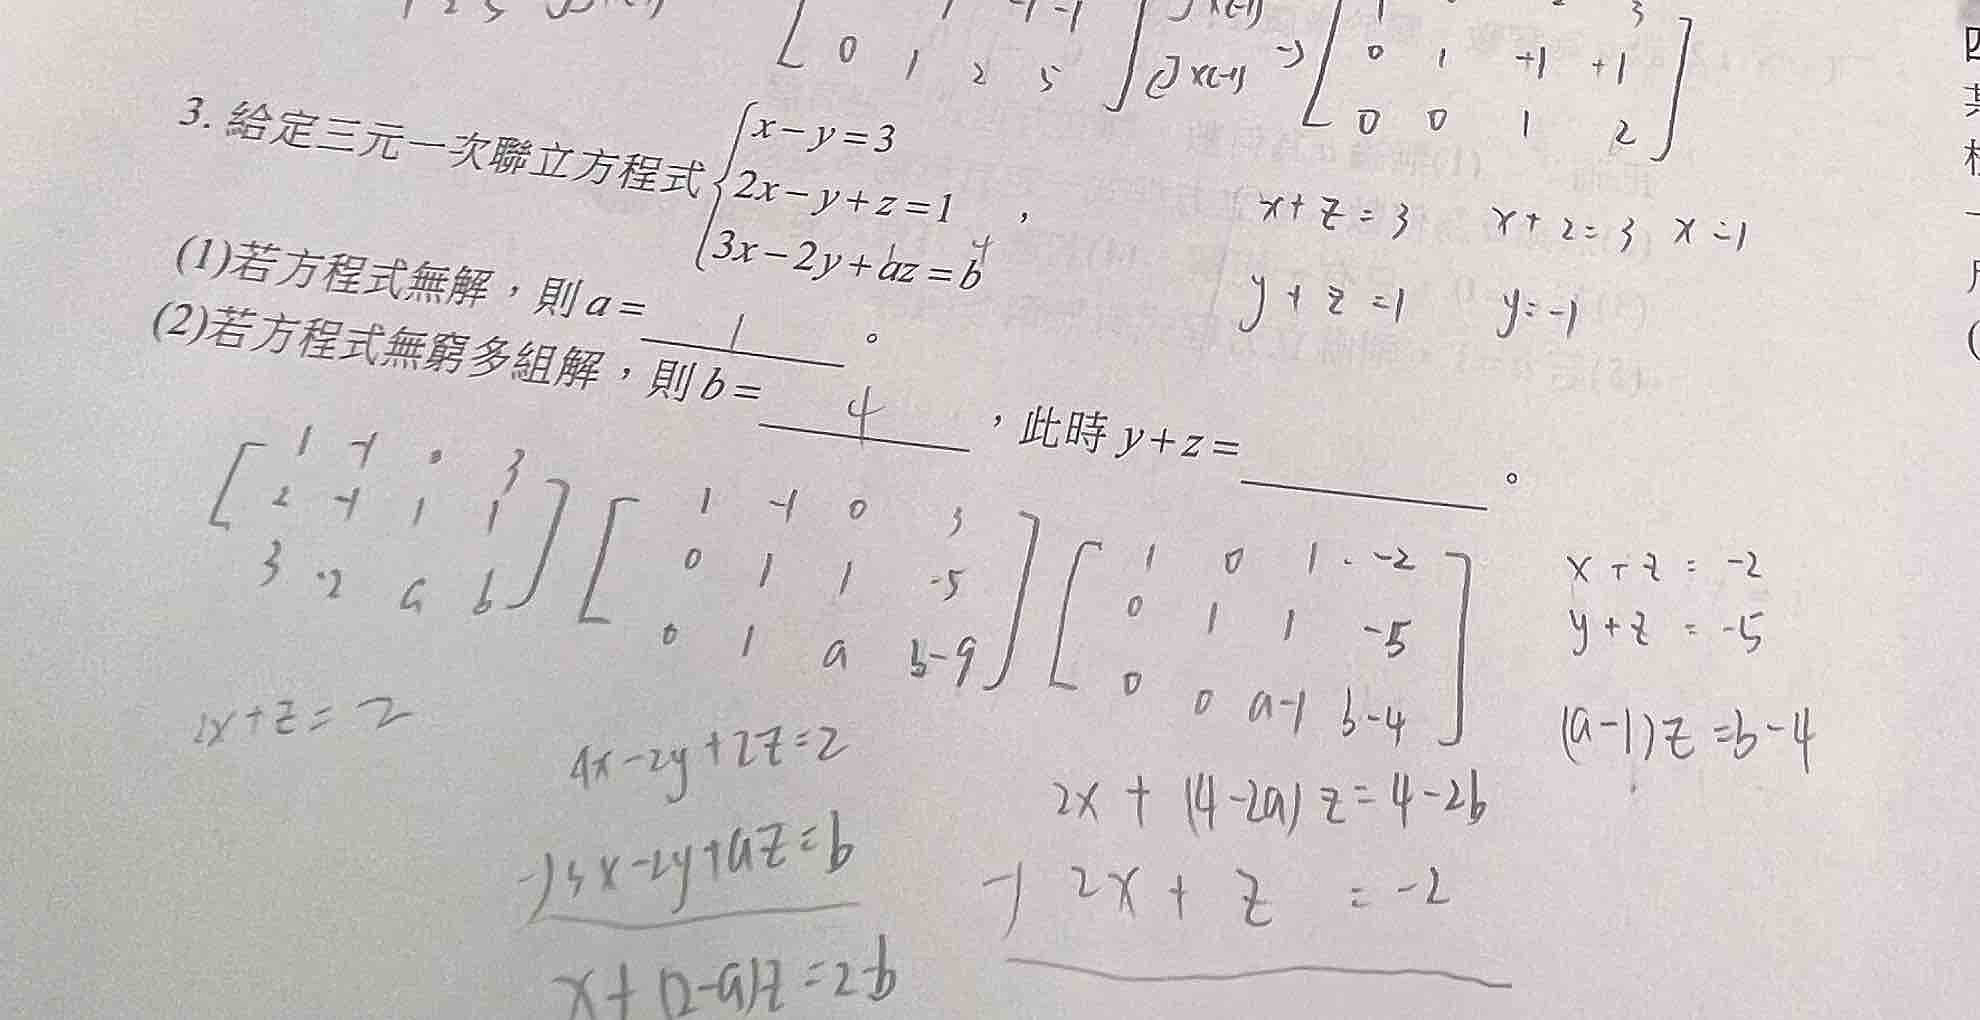 0 1 2 5 ] ②×(-1) → 0 1 +1 +1
0 0 1 2
3. 給定三元一次聯立方程式 { x-y=3
2x-y+z=1 ,
3x-2y+az=b
1 4
x+z=3 x+2=3 x=1
y+z=1 y=-1
(1)若方程式無解,則a= 1 。
(2)若方程式無窮多組解,則b= 4 ,此時y+z= 。
[ 1 -1 0 3
2 -1 1 1
3 -2 a b ]
[ 1 -1 0 3
0 1 1 -5
0 1 a b-9 ]
[ 1 0 1 -2
0 1 1 -5
0 0 a-1 b-4 ]
x+z=-2
y+z=-5
(a-1)z=b-4
2x+z=-2
4x-2y+2z=2
-)3x-2y+az=b
x+(2-a)z=2-b
2x+(4-2a)z=4-2b
-) 2x+z=-2